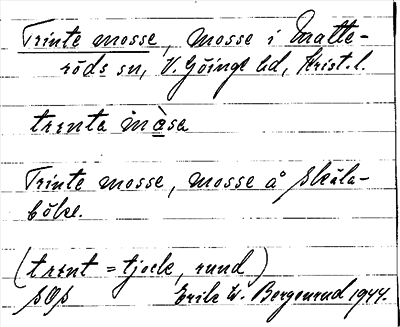 Trinte mosse, mosse i Matte-
röds sn, V. Göinge hd, Krist. l.
trɪnta mòsa
Trinte mosse, mosse å Skäla-
böke.
(trɪnt = tjock, rund)
SOS Erik W. Bergenrud 1944.